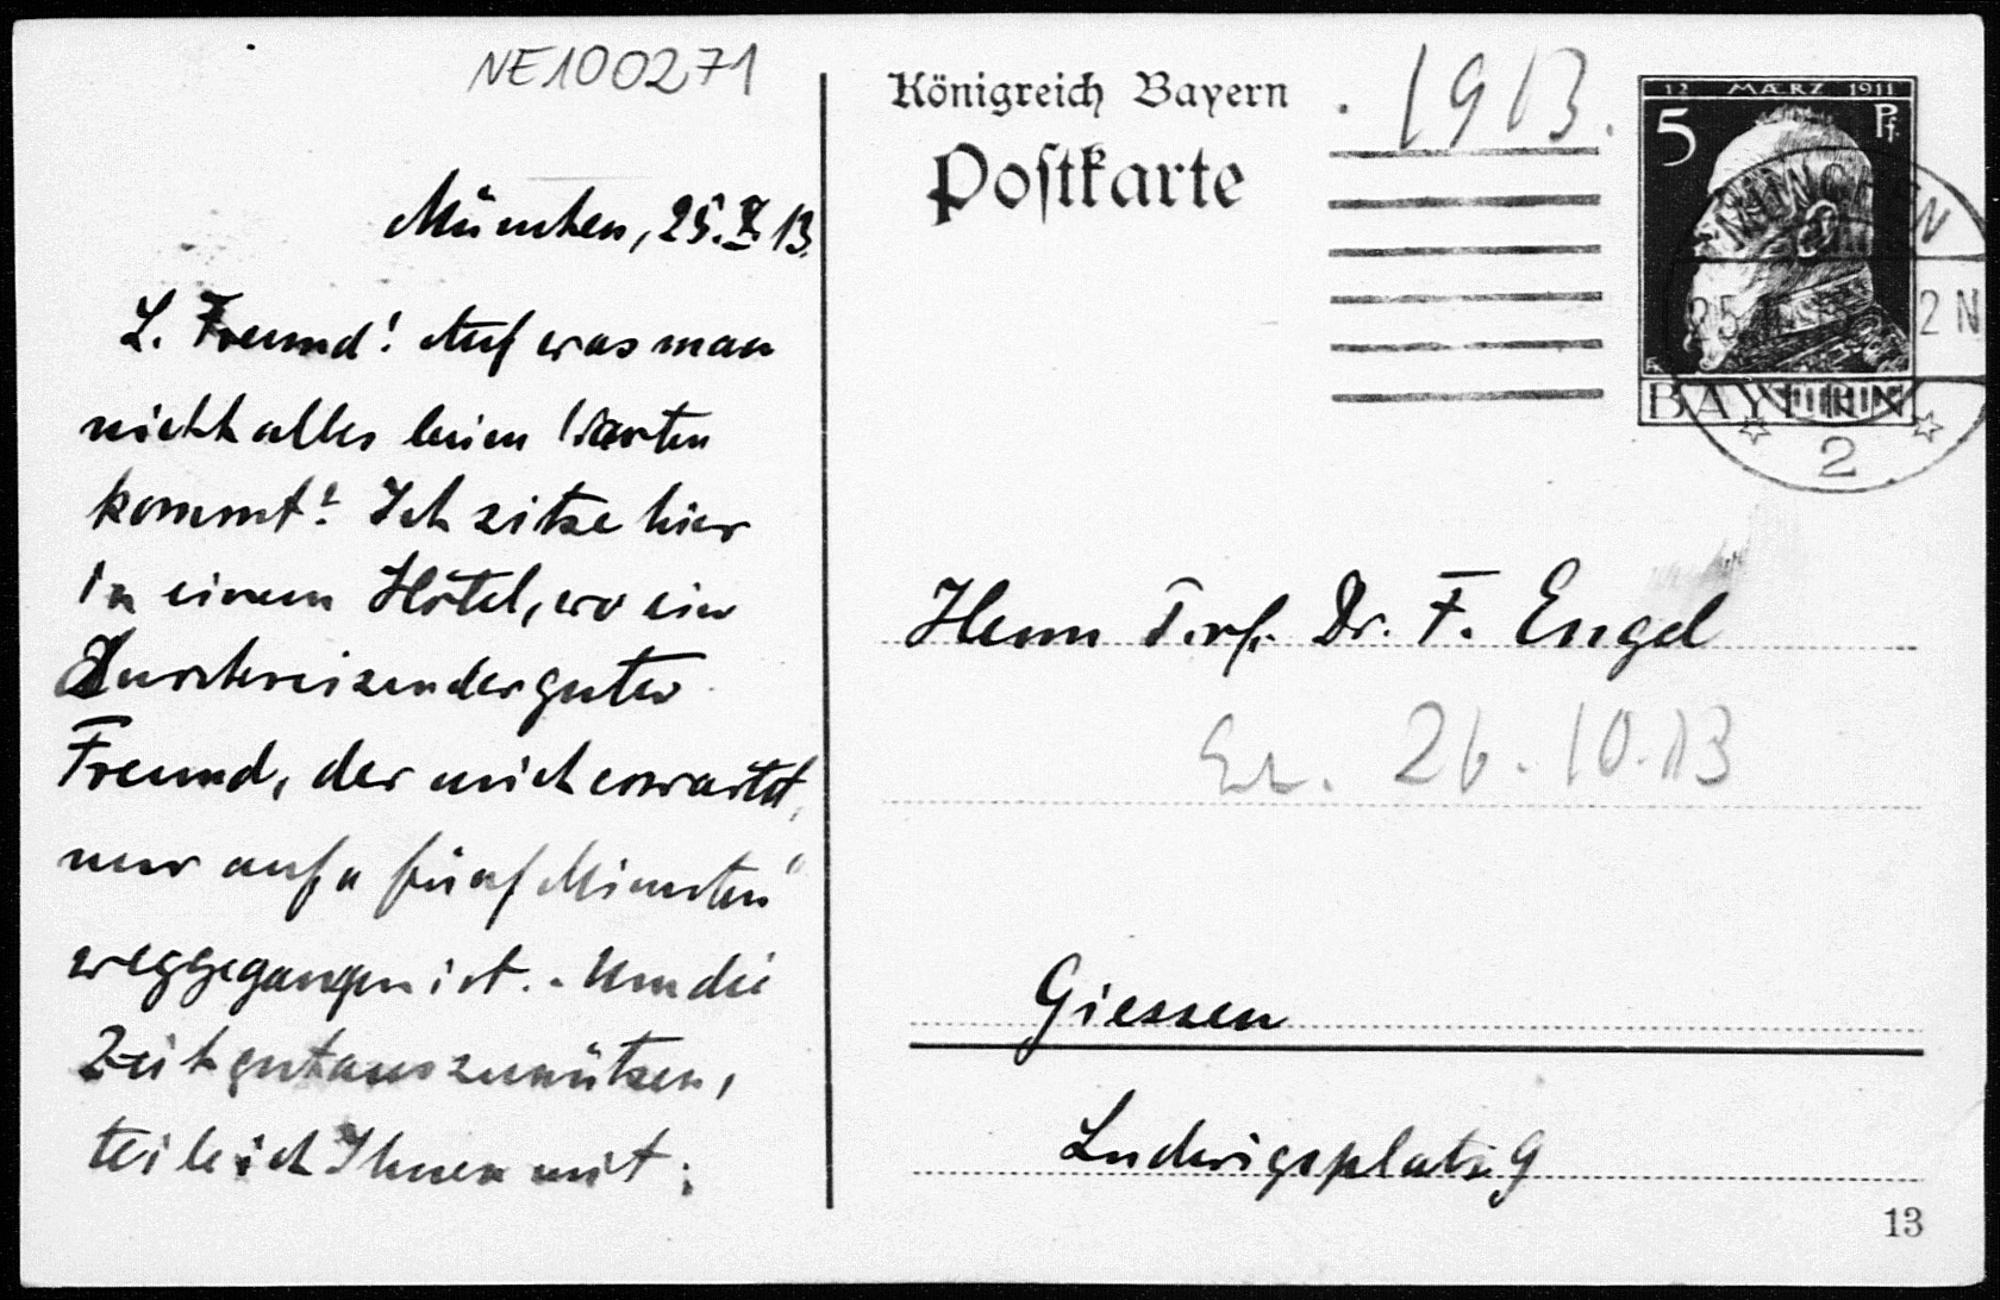 NE100271
München, 25. X. 13.
L. Freund! Auf was man
nicht alles beim Warten
kommt! Ich sitze hier
in einem Hôtel, wo ein
durchreisender guter
Freund, der mich erwartet,
nur auf „fünf Minuten“
weggegangen ist. - Um die
Zeit gut auszunützen,
teile ich Ihnen mit:
Königreich Bayern
Postkarte
1913.
12 MÆRZ 1911
5 Pf.
BAYERN
MÜNCHEN
25
2 N
2
Herrn Prof. Dr. F. Engel
26.10.13
Giessen
Ludwigsplatz 9
13